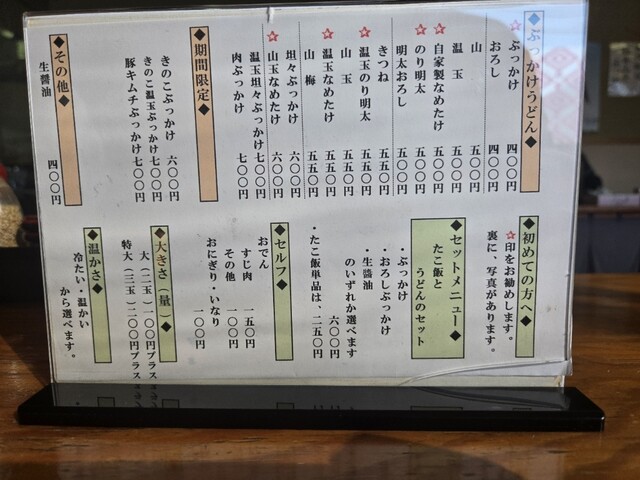 ◆ぶっかけうどん◆
☆ぶっかけ 四〇〇円
おろし 四〇〇円
山 五〇〇円
温玉 五〇〇円
☆自家製なめたけ 五〇〇円
☆のり明太 五〇〇円
明太おろし 五〇〇円
きつね 五五〇円
☆温玉のり明太 五五〇円
山玉 五五〇円
☆温玉なめたけ 五五〇円
山梅 五五〇円
坦々ぶっかけ 六〇〇円
☆山玉なめたけ 六〇〇円
温玉坦々ぶっかけ 七〇〇円
肉ぶっかけ 七〇〇円
◆期間限定◆
きのこぶっかけ 六〇〇円
きのこ温玉ぶっかけ 七〇〇円
豚キムチぶっかけ 七〇〇円
◆その他◆
生醤油 四〇〇円
◆初めての方へ◆
☆印をお勧めします。
裏に、写真があります。
◆セットメニュー◆
たこ飯と
うどんのセット
・ぶっかけ
・おろしぶっかけ
・生醤油
のいずれか選べます
六〇〇円
・たこ飯単品は、二五〇円
◆セルフ◆
おでん
すじ肉 一五〇円
その他 一〇〇円
おにぎり・いなり 一〇〇円
◆大きさ（量）◆
大（二玉）一〇〇円プラス
特大（三玉）二〇〇円プラス
◆温かさ◆
冷たい・温かい
から選べます。